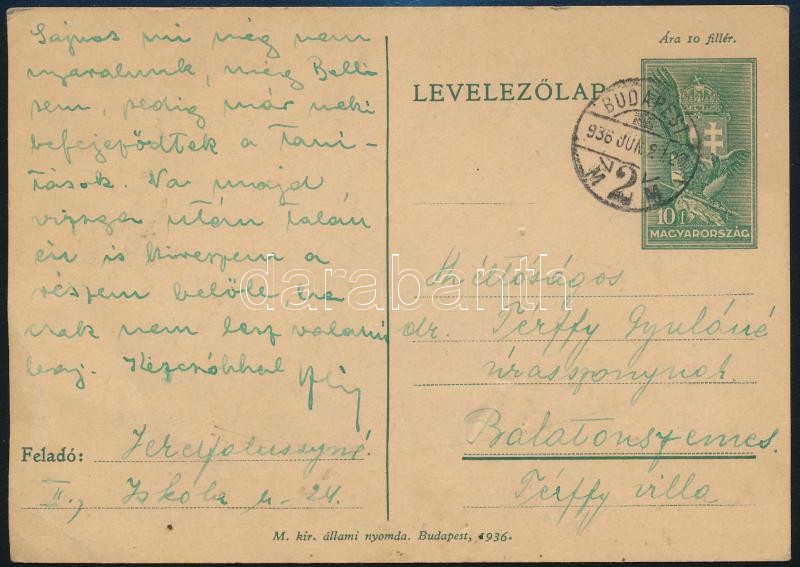 Sajnos mi még nem
nyaralunk, még Belli
sem, pedig már neki
befejeződtek a taní-
tások. Na majd
vizsga után talán
én is kiveszem a
részem belőle, ha
csak nem lesz valami
baj. Kézcsókkal
Feladó:
II., Iskola u. 24.
M. kir. állami nyomda. Budapest, 1936.
Ára 10 fillér.
LEVELEZŐLAP
BUDAPEST
936 JUN. 21
2
10 f
MAGYARORSZÁG
Méltóságos
dr. Térffy Gyuláné
úrasszonynak
Balatonszemes.
Térffy villa
darabanth